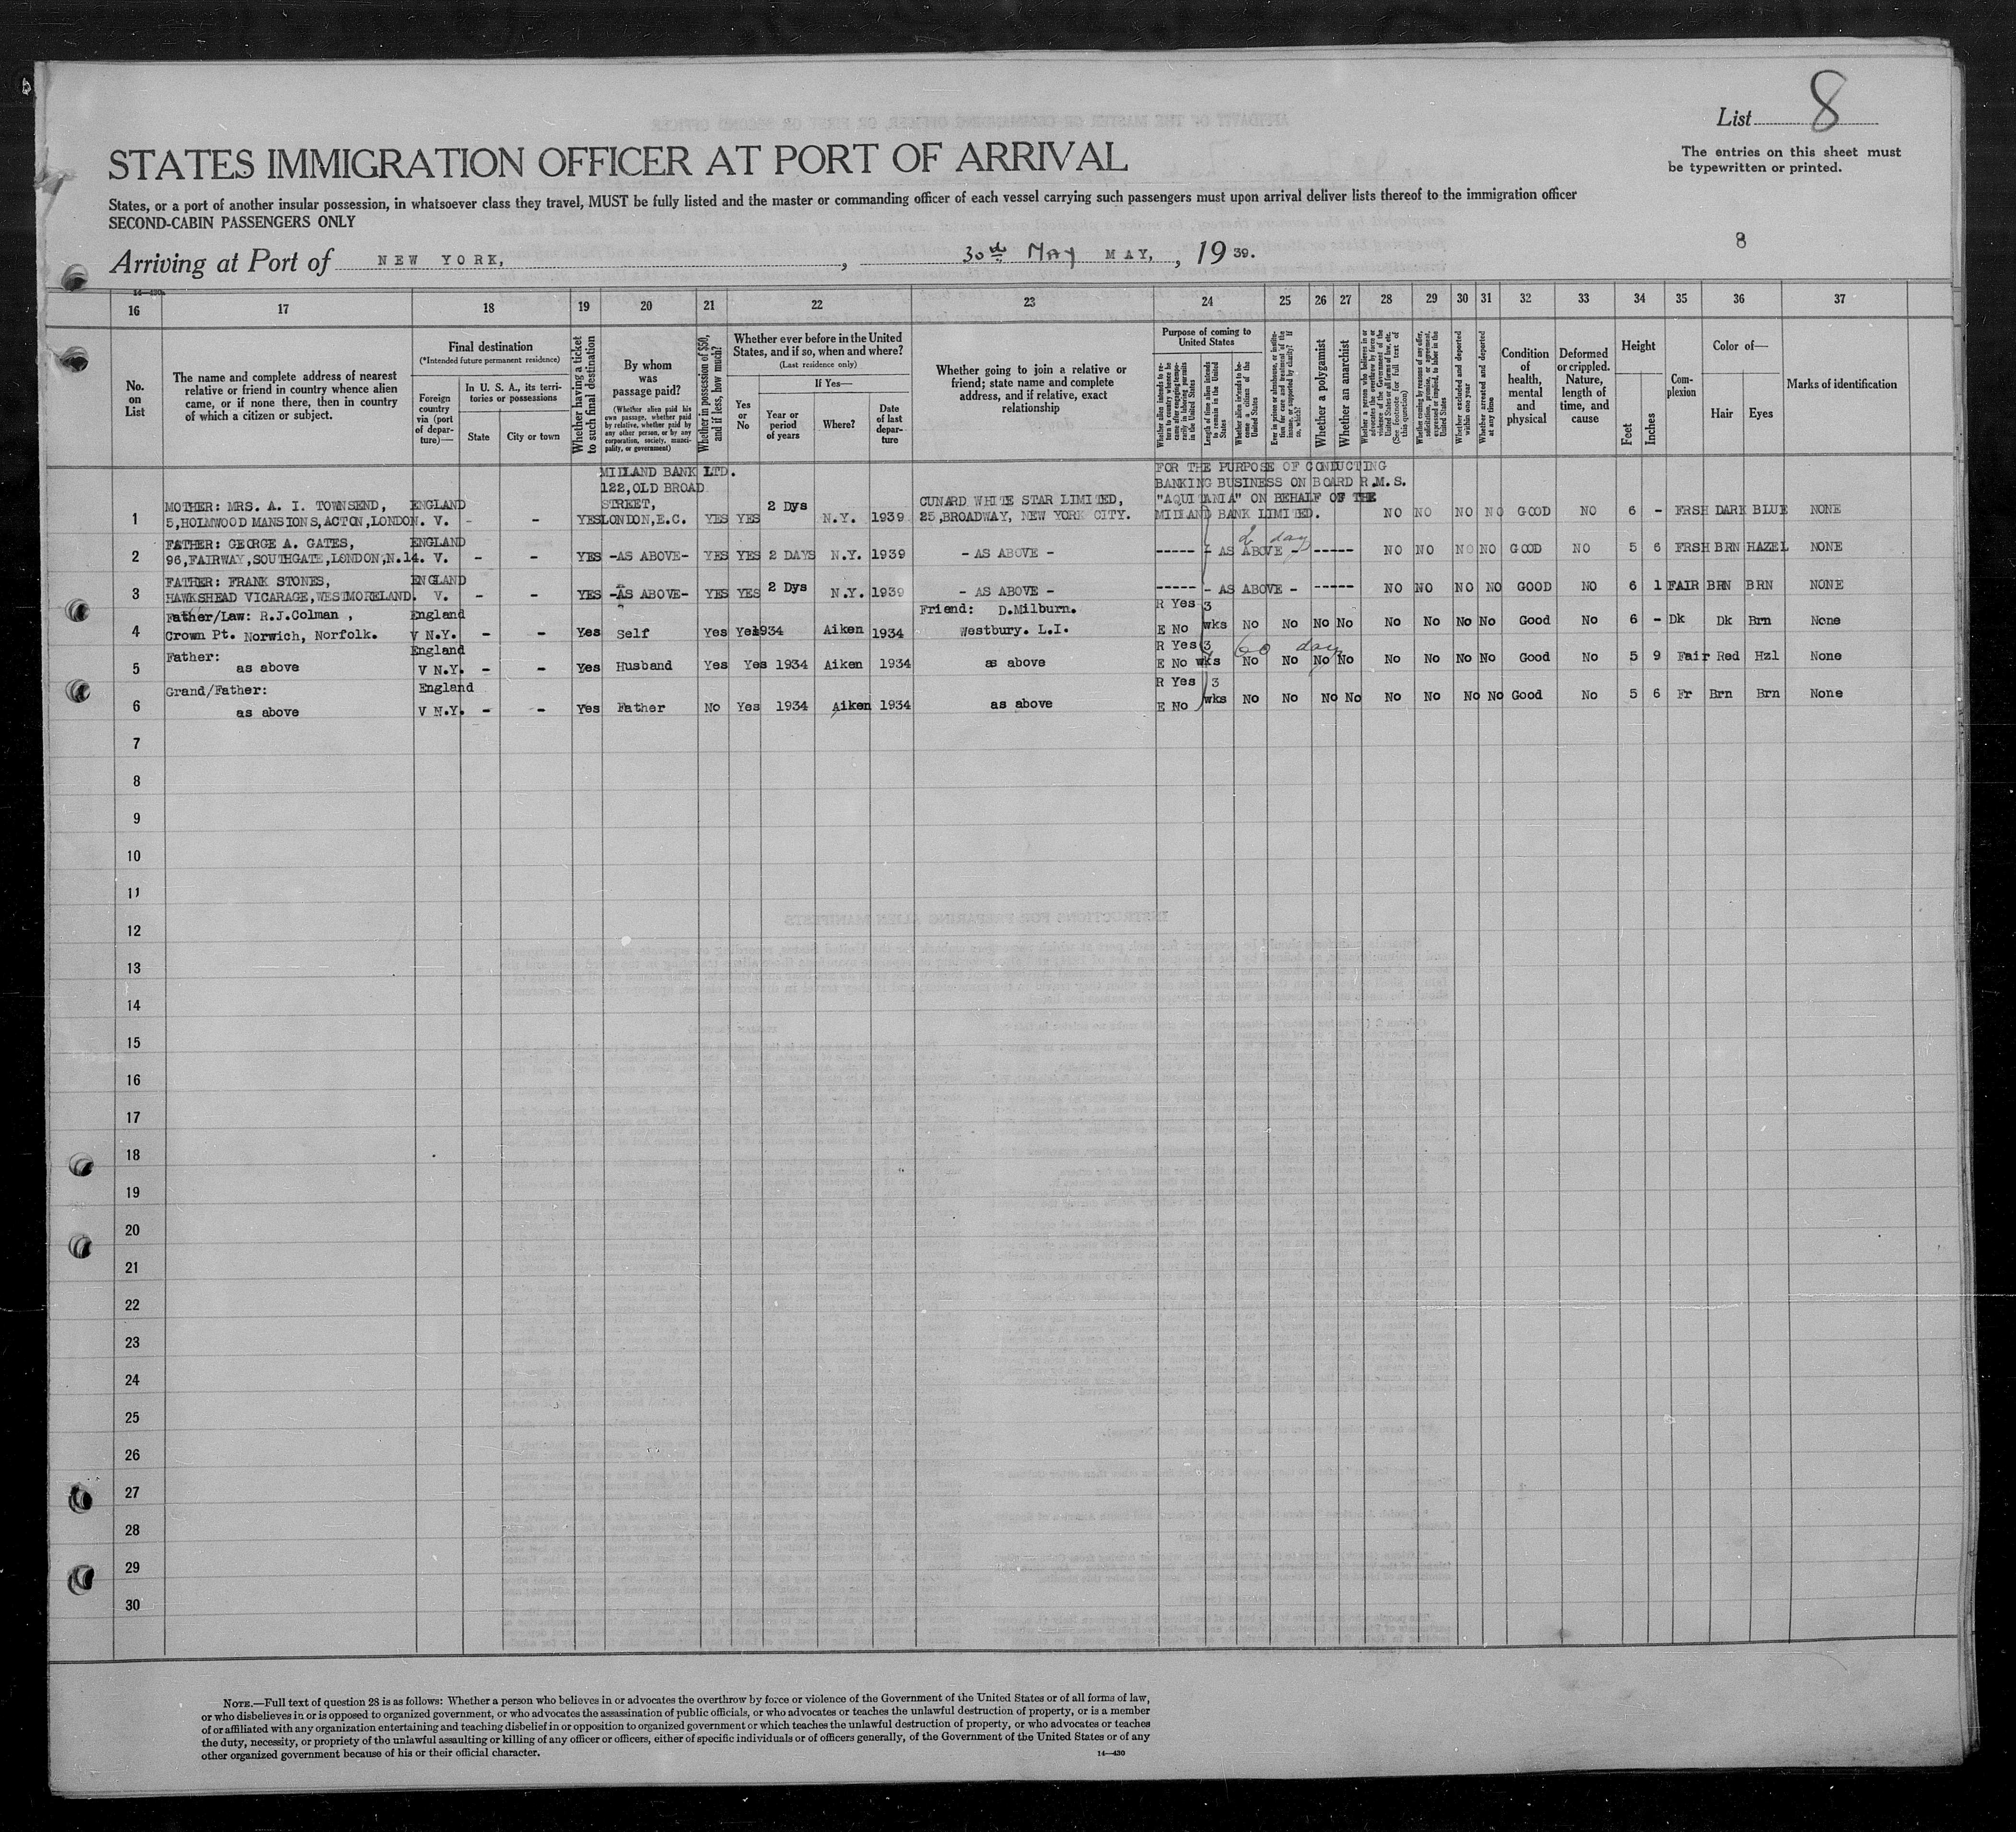 List 8
STATES IMMIGRATION OFFICER AT PORT OF ARRIVAL
The entries on this sheet must
be typewritten or printed.
States, or a port of another insular possession, in whatsoever class they travel, MUST be fully listed and the master or commanding officer of each vessel carrying such passengers must upon arrival deliver lists thereof to the immigration officer
SECOND-CABIN PASSENGERS ONLY
8
Arriving at Port of NEW YORK, , 30th May MAY, , 19 39.
14—430a
16 17 18 19 20 21 22 23 24 25 26 27 28 29 30 31 32 33 34 35 36 37
No. on List
The name and complete address of nearest relative or friend in country whence alien came, or if none there, then in country of which a citizen or subject.
Final destination
(*Intended future permanent residence)
Foreign country via (port of departure)—
In U. S. A., its territories or possessions
State
City or town
Whether having a ticket to such final destination
By whom was passage paid?
(Whether alien paid his own passage, whether paid by relative, whether paid by any other person, or by any corporation, society, municipality, or government)
Whether in possession of $50, and if less, how much?
Whether ever before in the United States, and if so, when and where?
(Last residence only)
Yes or No
If Yes—
Year or period of years
Where?
Date of last departure
Whether going to join a relative or friend; state name and complete address, and if relative, exact relationship
Purpose of coming to United States
Whether alien intends to return to country whence he came after engaging temporarily in laboring pursuits in the United States
Length of time alien intends to remain in the United States
Whether alien intends to become a citizen of the United States
Ever in prison or almshouse, or institution for care and treatment of the insane, or supported by charity? If so, which?
Whether a polygamist
Whether an anarchist
Whether a person who believes in or advocates the overthrow by force or violence of the Government of the United States or all forms of law, etc. (See footnote for full text of this question)
Whether coming by reason of any offer, solicitation, promise, or agreement, expressed or implied, to labor in the United States
Whether excluded and deported within one year
Whether arrested and deported at any time
Condition of health, mental and physical
Deformed or crippled. Nature, length of time, and cause
Height
Feet
Inches
Complexion
Color of—
Hair
Eyes
Marks of identification
MIDLAND BANK LTD. FOR THE PURPOSE OF CONDUCTING
122,OLD BROAD BANKING BUSINESS ON BOARD R.M.S.
MOTHER: MRS. A. I. TOWNSEND, ENGLAND STREET, 2 Dys CUNARD WHITE STAR LIMITED, "AQUITANIA" ON BEHALF OF THE
1 5,HOLMWOOD MANSIONS,ACTON,LONDON. V. - - YES LONDON,E.C. YES YES N.Y. 1939 25,BROADWAY, NEW YORK CITY. MIDLAND BANK LIMITED. NO NO NO NO GOOD NO 6 - FRSH DARK BLUE NONE
FATHER: GEORGE A. GATES, ENGLAND 2 days
2 96,FAIRWAY,SOUTHGATE,LONDON,N.14. V. - - YES -AS ABOVE- YES YES 2 DAYS N.Y. 1939 - AS ABOVE - ----- - AS ABOVE - ----- NO NO NO NO GOOD NO 5 6 FRSH BRN HAZEL NONE
FATHER: FRANK STONES, ENGLAND
3 HAWKSHEAD VICARAGE,WESTMORELAND. V. - - YES -AS ABOVE- YES YES 2 Dys N.Y. 1939 - AS ABOVE - ----- - AS ABOVE - ----- NO NO NO NO GOOD NO 6 1 FAIR BRN BRN NONE
Father/Law: R.J.Colman , England Friend: D.Milburn. R Yes 3
4 Crown Pt. Norwich, Norfolk. V N.Y. - - Yes Self Yes Yes 1934 Aiken 1934 Westbury. L.I. E No wks No No No No No No No No Good No 6 - Dk Dk Brn None
Father: England R Yes 3 60 days
5 as above V N.Y. - - Yes Husband Yes Yes 1934 Aiken 1934 as above E No wks No No No No No No No No Good No 5 9 Fair Red Hzl None
Grand/Father: England R Yes 3
6 as above V N.Y. - - Yes Father No Yes 1934 Aiken 1934 as above E No wks No No No No No No No No Good No 5 6 Fr Brn Brn None
7
8
9
10
11
12
13
14
15
16
17
18
19
20
21
22
23
24
25
26
27
28
29
30
NOTE.—Full text of question 28 is as follows: Whether a person who believes in or advocates the overthrow by force or violence of the Government of the United States or of all forms of law,
or who disbelieves in or is opposed to organized government, or who advocates the assassination of public officials, or who advocates or teaches the unlawful destruction of property, or is a member
of or affiliated with any organization entertaining and teaching disbelief in or opposition to organized government or which teaches the unlawful destruction of property, or who advocates or teaches
the duty, necessity, or propriety of the unlawful assaulting or killing of any officer or officers, either of specific individuals or of officers generally, of the Government of the United States or of any
other organized government because of his or their official character.
14—430